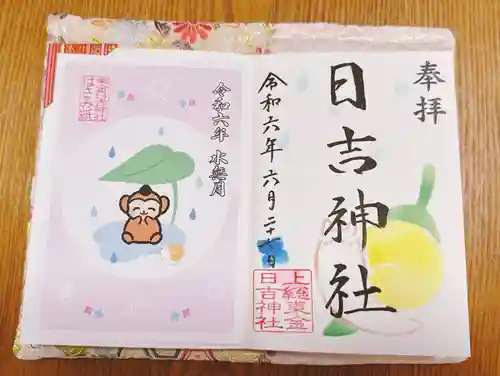 奉拝
日吉神社
令和六年六月二十七日
上総東金
日吉神社
令和六年 水無月